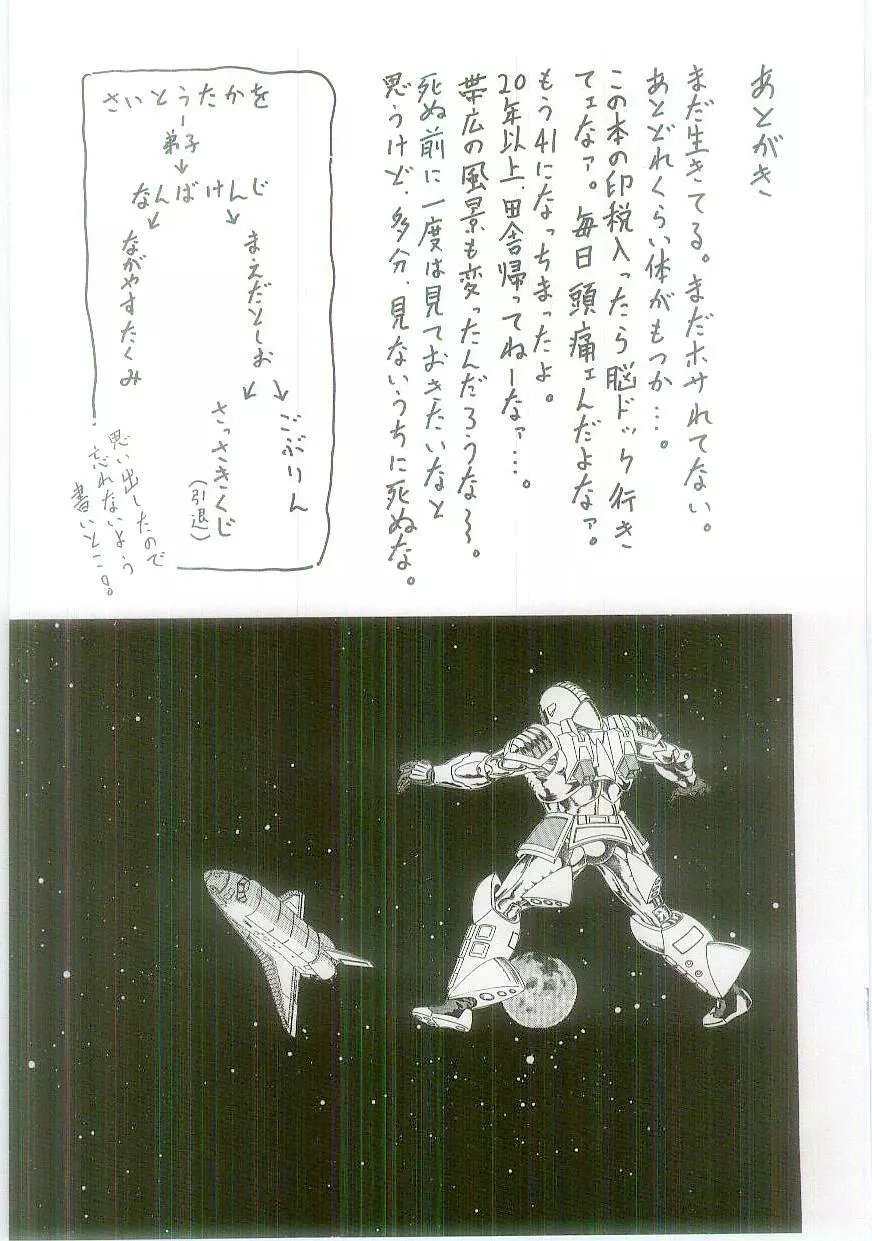 あとがき
まだ生きてる。まだホサれてない。
あとどれくらい体がもつか…。
この本の印税入ったら脳ドック行き
てェなァ。毎日頭痛ェんだよなァ。
もう41になっちまったよ。
20年以上、田舎帰ってねーなァ…。
帯広の風景も変ったんだろうな〜。
死ぬ前に一度は見ておきたいなと
思うけど、多分、見ないうちに死ぬな。
さいとうたかを
弟子
なんばけんじ
まえだとしお
ながやすたくみ
ごぶりん
さっさきくじ
(引退)
思い出したので
忘れないよう
書いとこ。